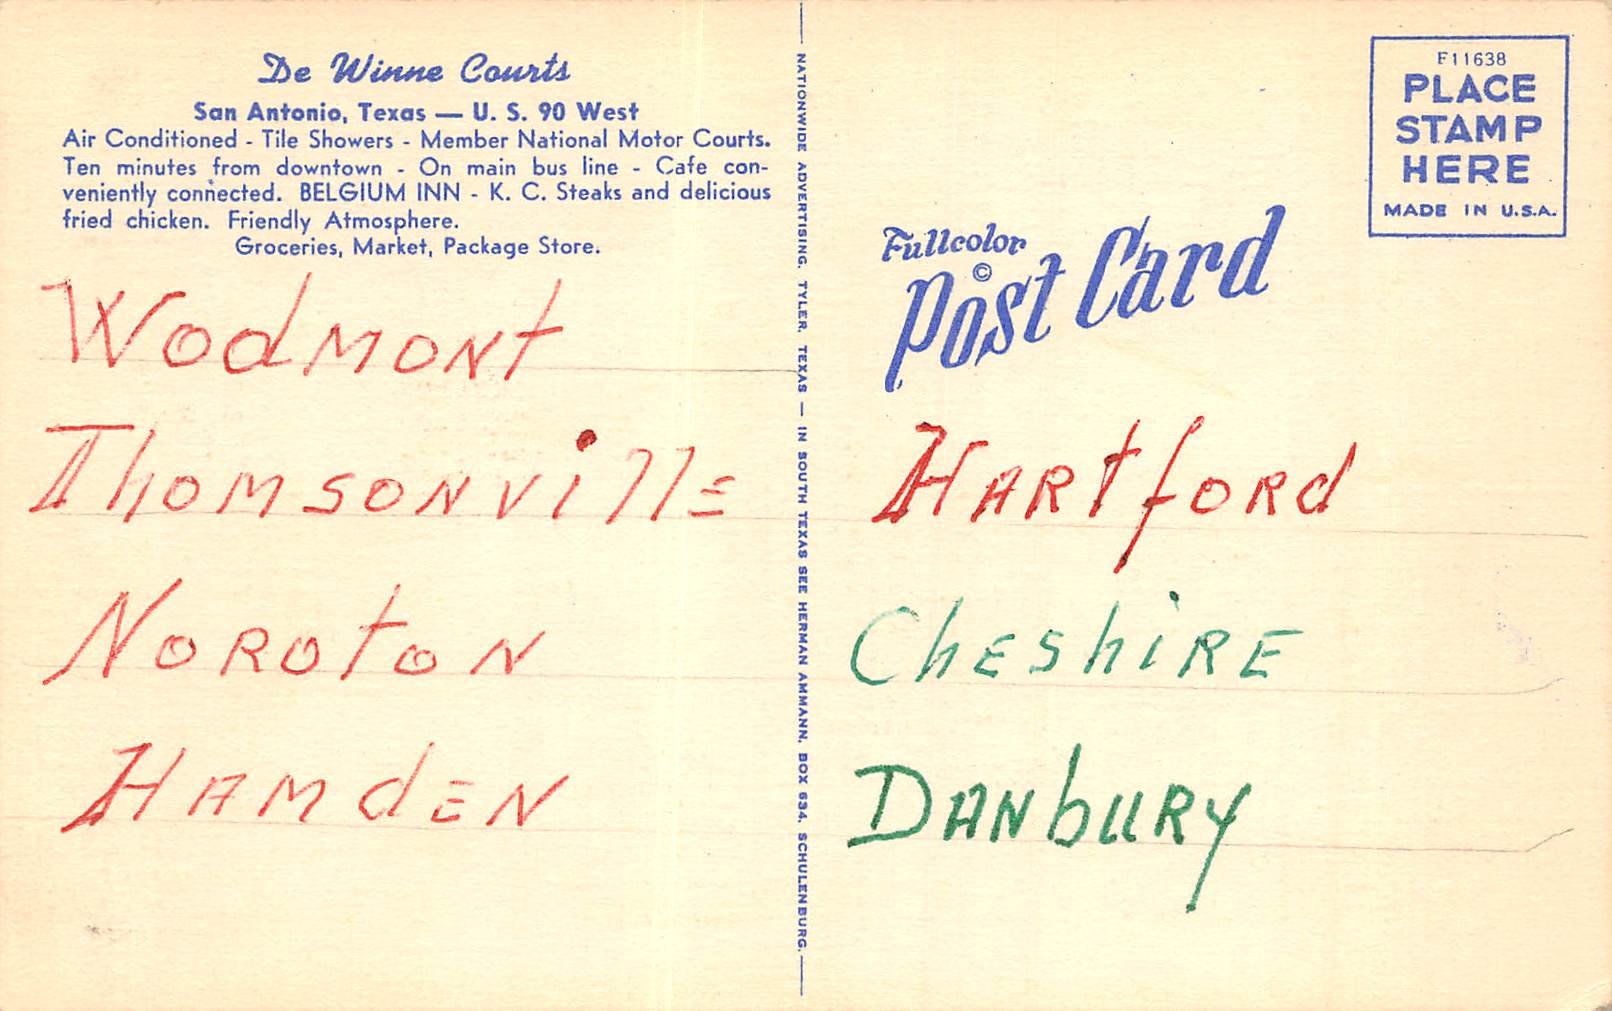 De Winne Courts
San Antonio, Texas — U. S. 90 West
Air Conditioned - Tile Showers - Member National Motor Courts.
Ten minutes from downtown - On main bus line - Cafe con-
veniently connected. BELGIUM INN - K. C. Steaks and delicious
fried chicken. Friendly Atmosphere.
Groceries, Market, Package Store.
Wodmont
Thomsonville
Noroton
Hamden
NATIONWIDE ADVERTISING, TYLER, TEXAS — IN SOUTH TEXAS SEE HERMAN AMMANN, BOX 634, SCHULENBURG.
F11638
PLACE
STAMP
HERE
MADE IN U.S.A.
Fullcolor
©
Post Card
Hartford
Cheshire
Danbury